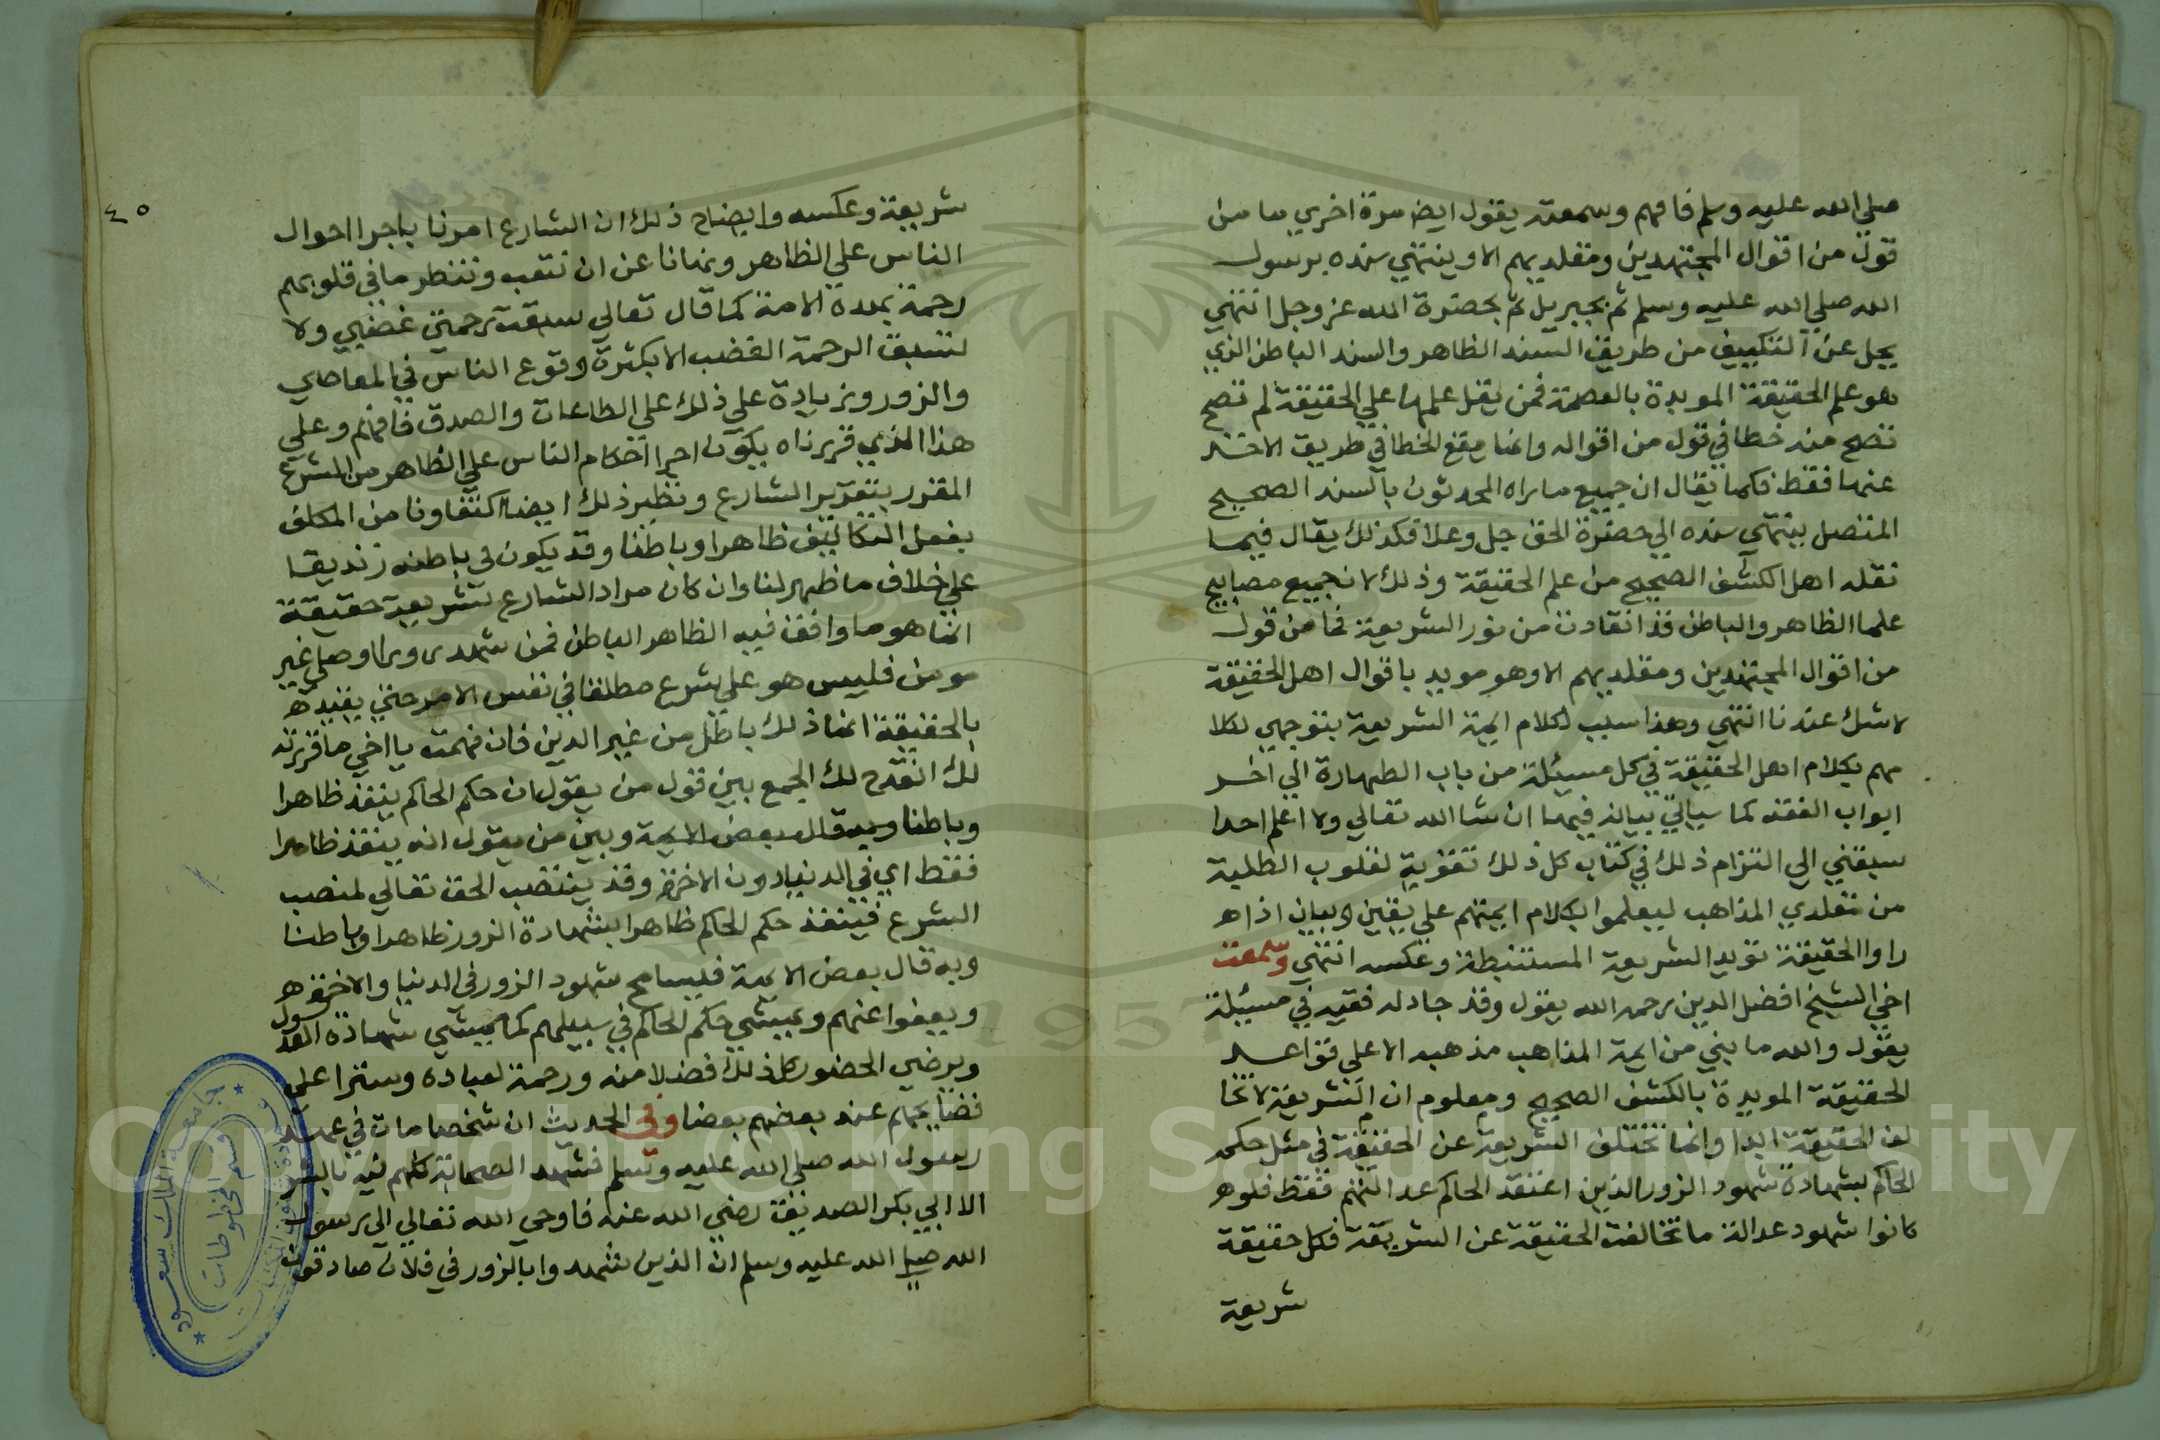 صلي الله عليه وسلم فافهم وسمعته يقول ايضا مرة اخري ما من
قول من اقوال المجتهدين ومقلديهم الا وينتهي سنده برسول
الله صلي الله عليه وسلم ثم بجبريل ثم بحضرة الله عز وجل التي
يجل عن التكييف من طريق السند الظاهر والسند الباطن الذي
هو علم الحقيقة المويدة بالعصمة فمن نقل علمها علي الحقيقة لم تصح
تصح منه خطا في قول من اقواله وانما يقع الخطا في طريق الاخذ
عنها فقط فكما يقال ان جميع ما رواه المحدثون بالسند الصحيح
المتصل ينتهي سنده الي حضرة الحق جل وعلا فكذلك يقال فيما
نقله اهل الكشف الصحيح من علم الحقيقة وذلك لان جميع مصابيح
علما الظاهر والباطن قد اتقادت من نور الشريعة فما من قول
من اقوال المجتهدين ومقلديهم الا وهو مويد باقوال اهل الحقيقة
لا شك عندنا انتهي وهذا سبب لكلام ايمة الشريعة بتوجهي لكلا
مهم بكلام اهل الحقيقة في كل مسيلة من باب الطهارة الي اخر
ابواب الفقه كما سياتي بيانه فيها ان شا الله تعالي ولا اعلم احدا
سبقني الي التزام ذلك في كتاب كل ذلك تقوية لقلوب الطلبة
من مقلدي المذاهب ليعلموا بكلام ايمتهم علي يقين وبيان اذاه
راوا الحقيقة تويد الشريعة المستنبطة وعكسه انتهي وسمعت
اخي الشيخ افضل الدين رحمه الله يقول وقد جادله فقيه في مسيلة
يقول والله ما بني من ايمة المذاهب مذهبه الا علي قواعد
الحقيقة المويدة بالكشف الصحيح ومعلوم ان الشريعة لا تخا
لف الحقيقة ابدا وانما تختلف الشريعة عن الحقيقة في مثل حكم
الحاكم بشهادة شهود الزور الذين اعتقد الحاكم عدالتهم فقط فلوه
كانوا شهود عدالة ما تخالفت الحقيقة عن الشريعة فكل حقيقة
شريعة
٤٥
شريعة وعكسه وايضاح ذلك ان الشارع امرنا باجرا احوال
الناس علي الظاهر ونهانا عن ان ننقب وننظر ما في قلوبهم
رحمة بهذة الامة كما قال تعالي سبقت رحمتي غضبي ولا
تسبق الرحمة الغضب الا بكثرة وقوع الناس في المعاصي
والزور وزيادة علي ذلك علي الطاعات والصدق فافهم وعلي
هذا الذي قررناه يكون اجرا احكام الناس علي الظاهر من الشرع
المقرر بتقرير الشارع ونظير ذلك ايضا اكتفاونا من المكلف
بفعل التكاليف ظاهرا وباطنا وقد يكون في باطنه زنديقا
علي خلاف ما ظهر لنا وان كان مراد الشارع بشريعة حقيقة
انما هو ما وافق فيه الظاهر الباطن فمن شهد زورا او صلي غير
مومن فليس هو علي شرع مطلقا في نفس الامر حتي يقيده
بالحقيقة انما ذلك باطل من غير الدين فان فهمت يا اخي ما قررته
لك انقدح لك الجمع بين قول من يقول ان حكم الحاكم ينفذ ظاهرا
وباطنا وبه قال بعض الايمة وبين من يقول انه ينفذ ظاهرا
فقط اي في الدنيا دون الاخرة وقد ينتصب الحق تعالي لمنصب
الشرع فينفذ حكم الحاكم ظاهرا بشهادة الزور ظاهرا وباطنا
وبه قال بعض الايمة فيسامح شهود الزور في الدنيا والاخرة
ويعفوا عنهم ويمشي حكم الحاكم في سبيلهم كما يمشي شهادة العدول
ويرضي الخصوم كل ذلك فضلا منه ورحمة لعباده وسترا علي
فضايحهم عند بعضهم بعضا وفي الحديث ان شخصا مات في عهد
رسول الله صلي الله عليه وسلم فشهد الصحابة كلهم فيه بالشر
الا ابي بكر الصديق رضي الله عنه فاوحي الله تعالي الي رسول
الله صلي الله عليه وسلم ان الذين شهدوا بالزور في فلان صادقون
جامعة الملك سعود
قسم المخطوطات
Copyright © King Saud University
1957